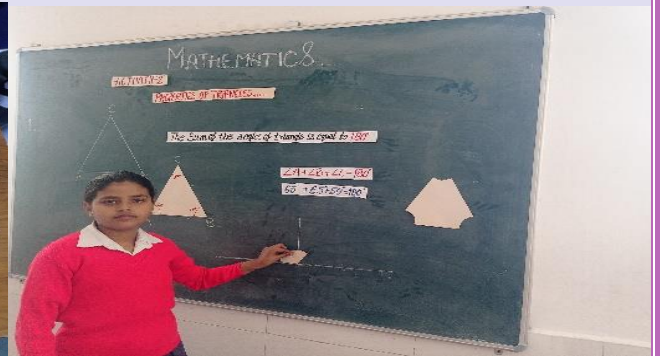 MATHEMATICS..
ACTIVITY-2
PROPERTIES OF TRIANGLES...
The Sum of the angles of triangle is equal to 180°
∠A+∠B+∠C=180°